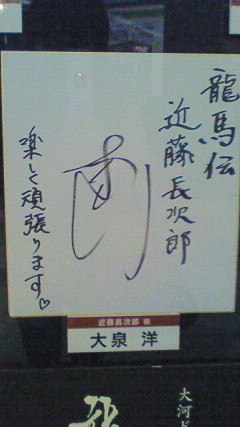 龍馬伝
近藤長次郎
楽しく頑張ります♡
近藤長次郎 役
大泉 洋
大河ド